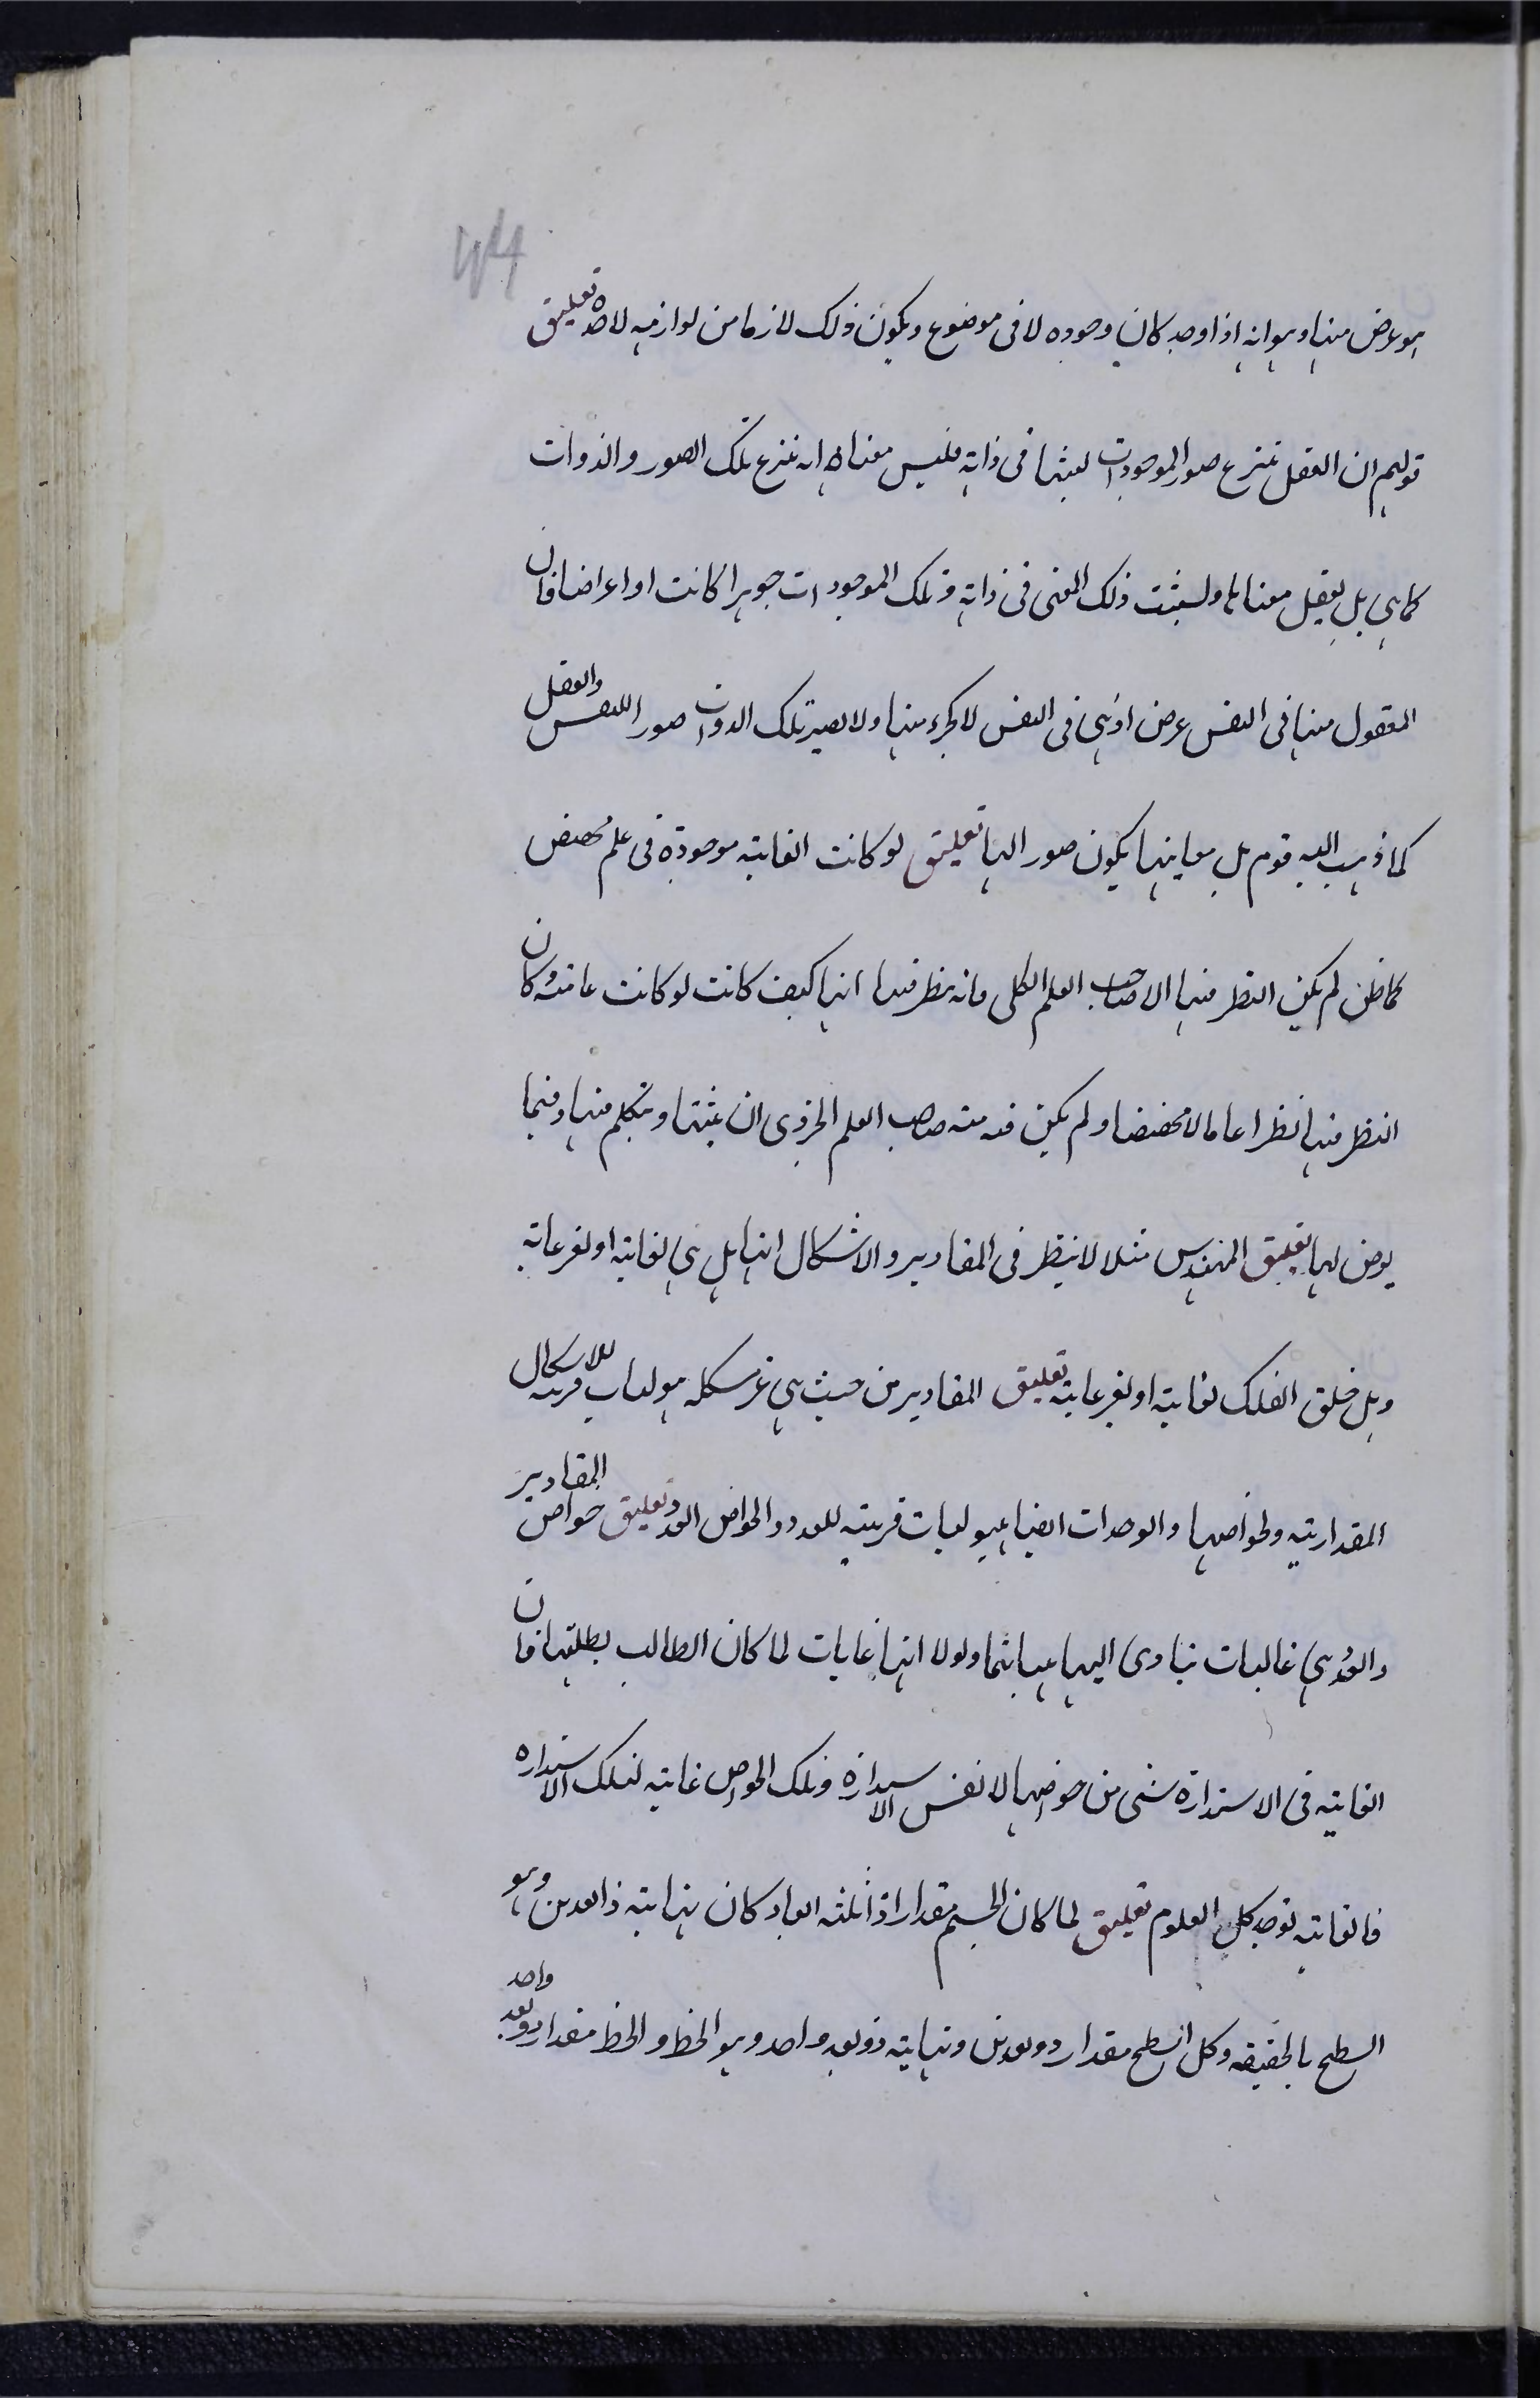 ٤٤
هو عرض منها وهو انه اذا وجد كان وجوده لا فى موضوع ويكون ذلك لازما من لوازمه لا حده تعليق
قولهم ان العقل ينتزع صور الموجودات يثبتها فى ذاته فليس معناه انه ينتزع تلك الصور والذوات
كما هى بل يعقل معناها ويثبت ذلك المعنى فى ذاته وتلك الموجودات جوهرا كانت او اعراضا فان
المعقول منها فى النفس عرض اذ هى فى النفس لا كجزء منها ولا تصير تلك الذوات صورا للنفس والعقل
كما ذهب اليه قوم بل معاينها يكون صورا لها تعليق لو كانت الغاية موجودة فى علم مخصص
كما ظن لم يكن النظر فيها الا لصاحب العلم الكلى فانه ينظر فيها انها كيف كانت لو كانت عامة كان
النظر فيها نظرا عاما لا مخصصا ولم يكن فيه منه صاحب العلم الجزوى ان يثبتها ويتكلم فيها وفيما
يعرض لها تعليق المهندس مثلا لا ينظر فى المقادير والاشكال انها هل هى لغاية او لغير غاية
وهل خلق الفلك لغاية او لغير غاية تعليق المقادير من حيث هى غير مشكله هيوليات قريبه للاشكال
المقدارية ولخواصها والوحدات ايضا هيوليات قريبه للعدد ولخواص العدد تعليق خواص المقادير
والعدد هى غايات يتادى اليها هيئاتها ولولا انها غايات لما كان الطالب يطلبها فان
الغاية فى الاستدارة شى من خواصها لا نفس الاستدارة وتلك الخواص غاية لتلك الاستدارة
فالغاية توجد كل العلوم تعليق لما كان الجسم مقدارا ذا ثلثه ابعاد كان نهايته ذا بعدين وهو
السطح بالحقيقه وكل السطح مقدار ذو بعدين ونهايته ذو بعد واحد وهو الخط والخط مقدار ذو بعد واحد